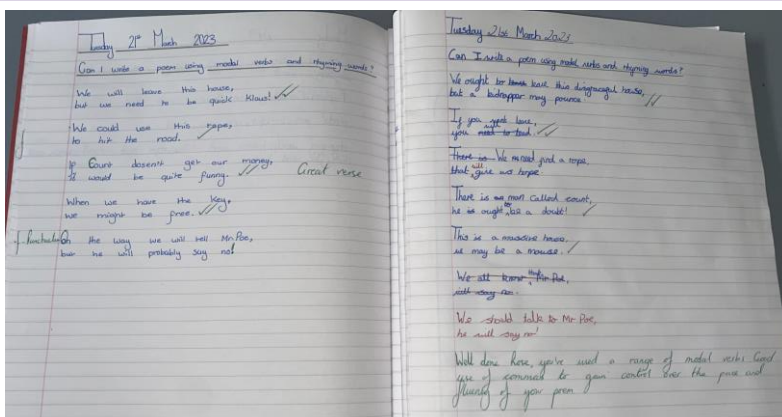 Tuesday 21st March 2023
Can I write a poem using modal verbs and rhyming words?
We will leave this house,
but we need to be quick Klaus!
We could use this rope,
to hit the road.
If Count doesn't get our money,
it would be quite funny.
Great verse
When we have the key,
we might be free.
Punctuation
On the way we will tell Mr Poe,
but he will probably say no!
Tuesday 21st March 2023
Can I write a poem using modal verbs and rhyming words?
We ought to leave this disgraceful house,
but a kidnapper may pounce.
If you love,
you
There is We need find a rope,
that will give us hope
There is a man called count,
he is ought to be a doubt!
This is a massive house,
we may be a mouse.
We all know that Mr Poe,
will say no.
We should talk to Mr Poe,
he will say no!
Well done, you've used a range of modal verbs. Good
use of commas to gain control over the pace and
fluency of your poem